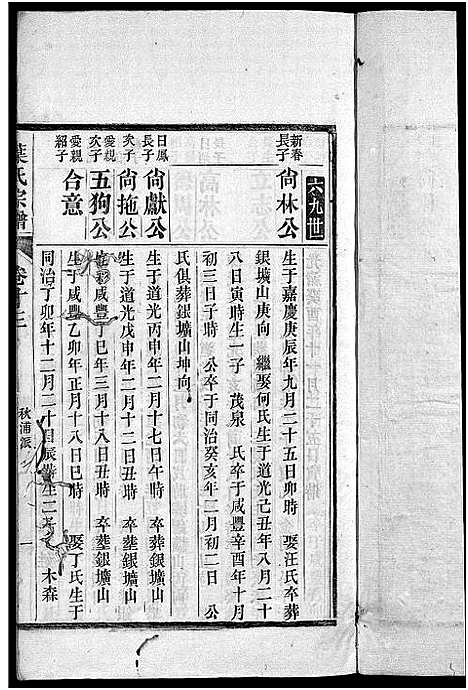 六九世
新春
長子
尙林公
生于嘉慶庚辰年九月二十五日卯時　娶汪氏卒葬
銀壙山庚向　繼娶何氏生于道光己丑年八月二十
八日寅時生一子　茂泉　氏卒于咸豐辛酉年十月
初三日子時　公卒于同治癸亥年二月初二日　公
氏俱葬銀壙山坤向
日鳳
長子
尙獻公
生于道光丙申年二月十七日午時　卒葬銀壙山
次子
尙拖公
生于道光戊申年二月十二日丑時　卒塟銀壙山
愛親
次子
五狗公
咸豐丁巳年三月十八日丑時　卒塟銀壙山
愛親
紹子
合意
生于咸豐乙卯年正月十八日巳時　娶丁氏生于
同治丁卯年十二月二十日辰時生二子　木森
葉氏宗譜
卷十二
秋浦派
一